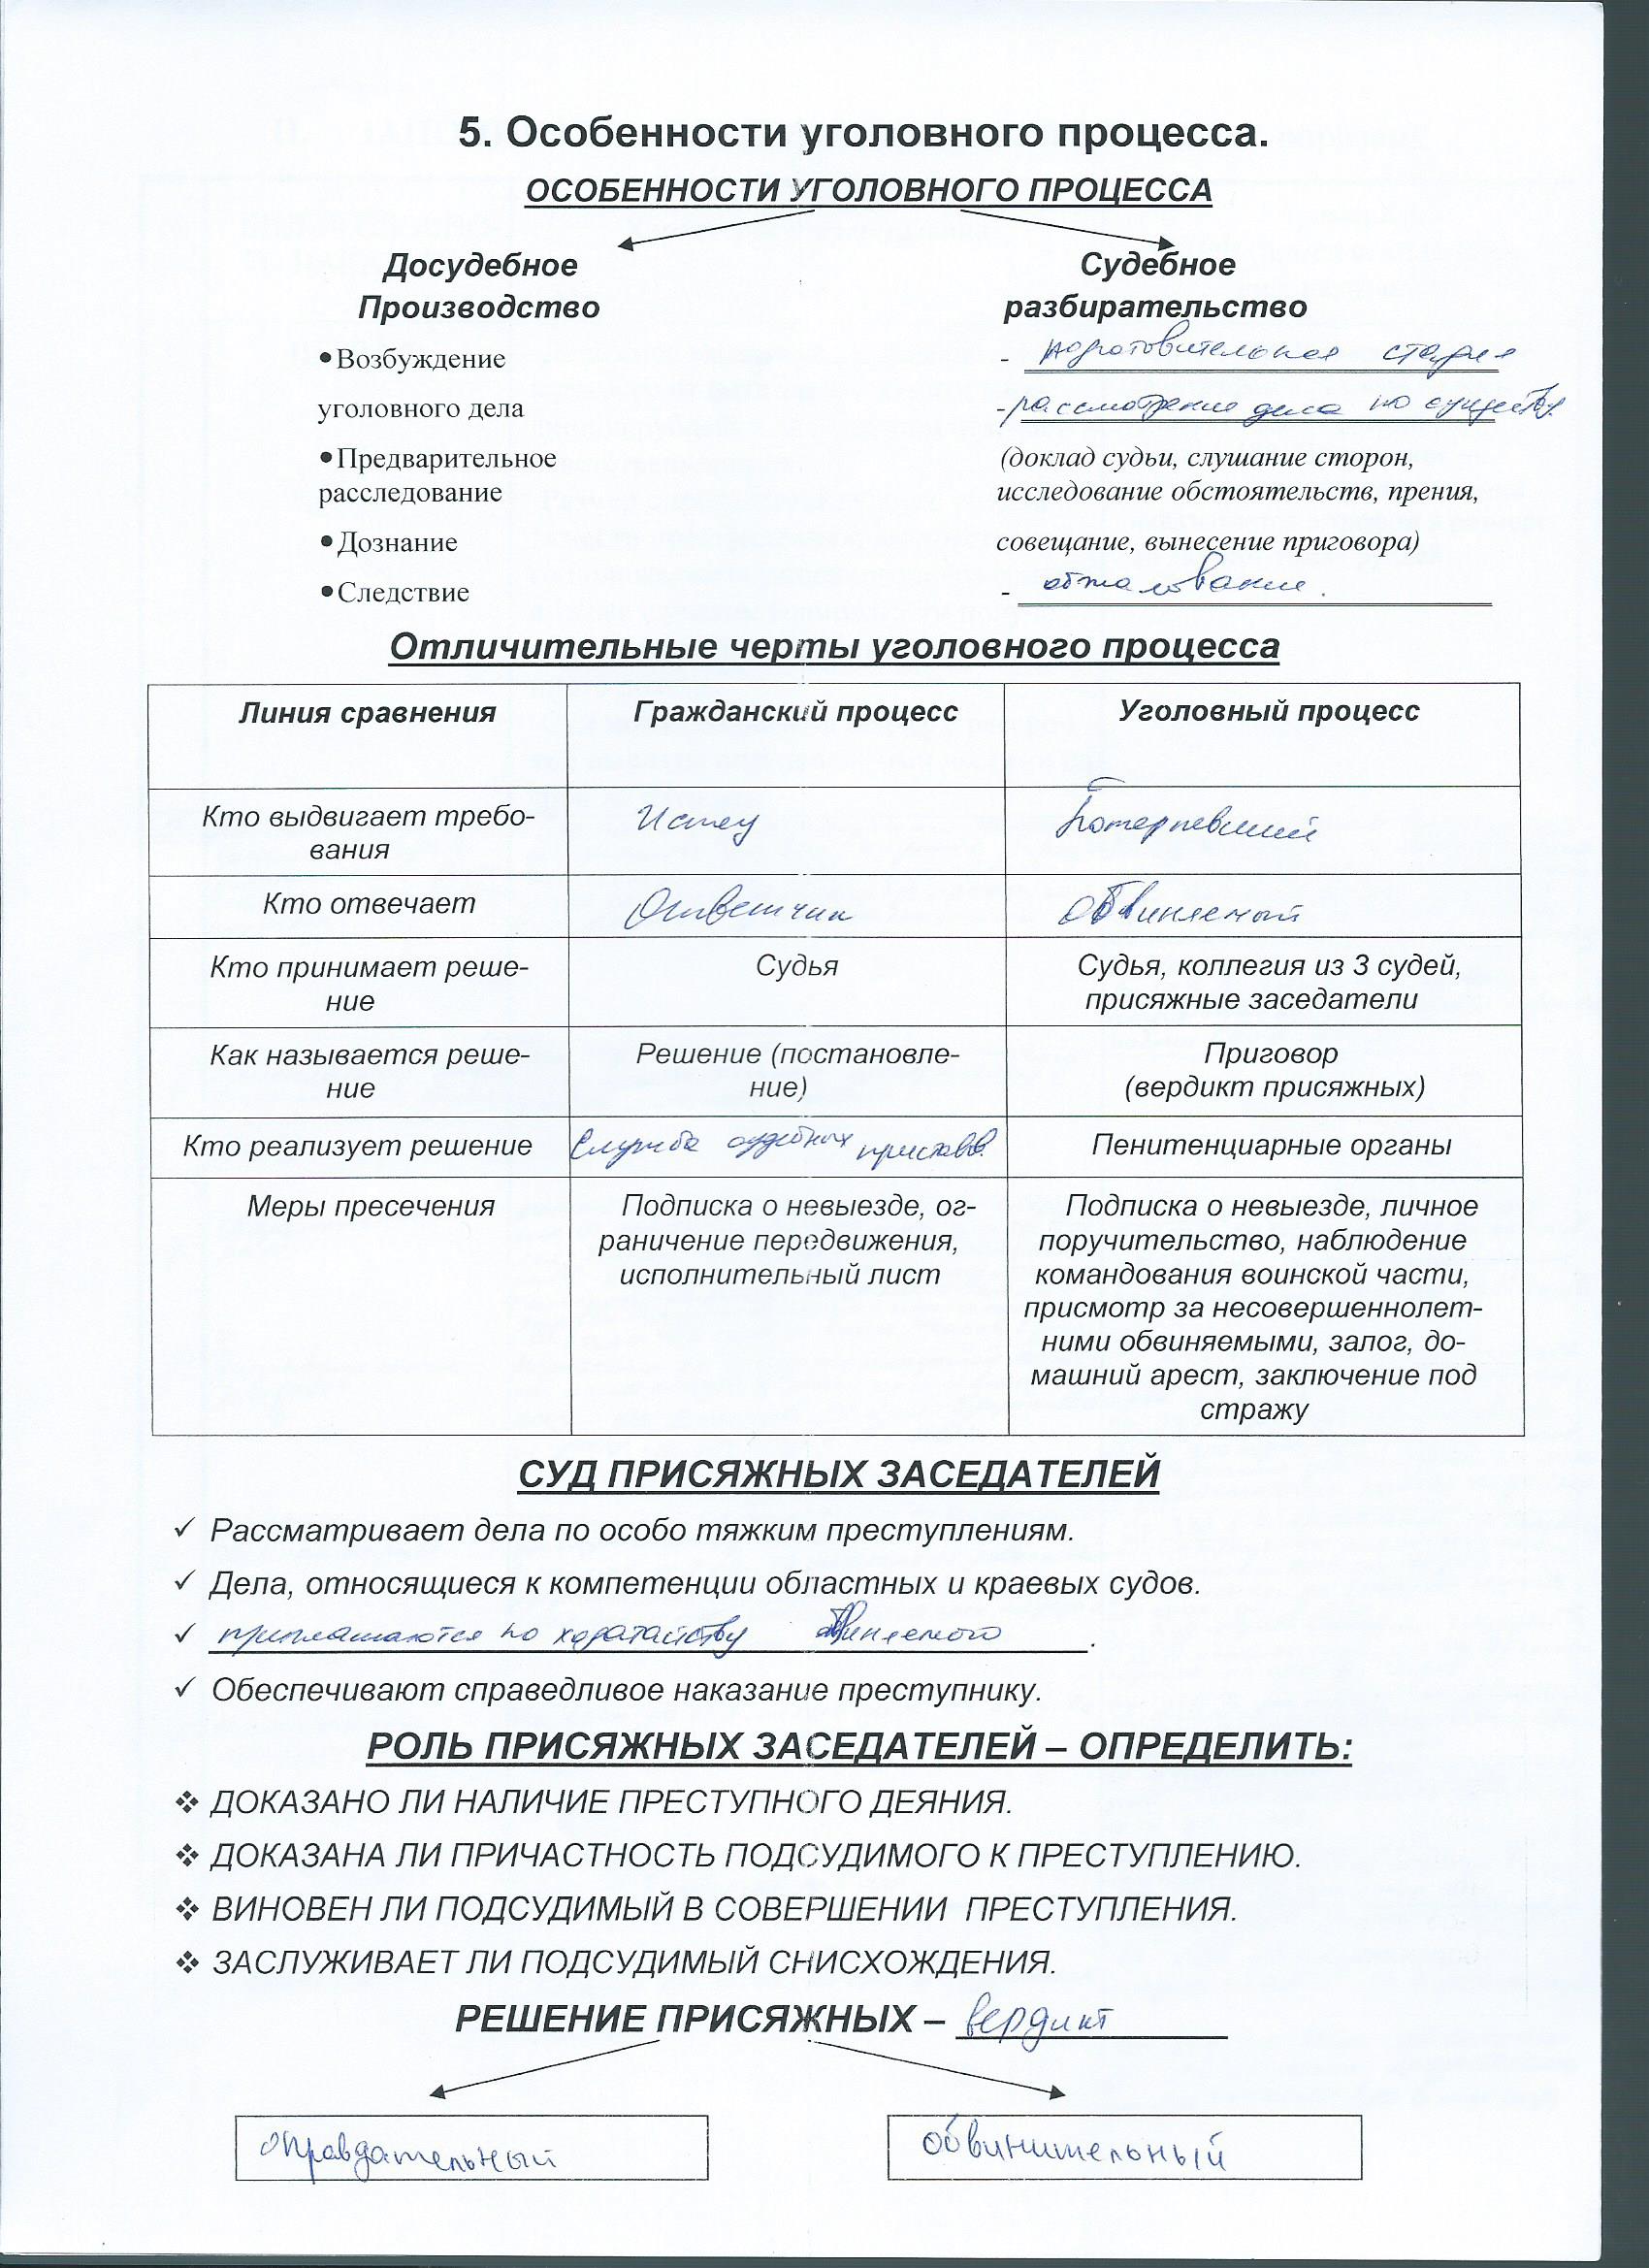 5. Особенности уголовного процесса.
ОСОБЕННОСТИ УГОЛОВНОГО ПРОЦЕССА
Досудебное
Производство
•Возбуждение
уголовного дела
•Предварительное
расследование
•Дознание
•Следствие
Судебное
разбирательство
- подготовительная стадия
-рассмотрение дела по существу.
(доклад судьи, слушание сторон,
исследование обстоятельств, прения,
совещание, вынесение приговора)
- обжалование.
Отличительные черты уголовного процесса
Линия сравнения Гражданский процесс Уголовный процесс
Кто выдвигает требо-
вания
Истец
Потерпевший
Кто отвечает Ответчик обвиняемый
Кто принимает реше-
ние
Судья
Судья, коллегия из 3 судей,
присяжные заседатели
Как называется реше-
ние
Решение (постановле-
ние)
Приговор
(вердикт присяжных)
Кто реализует решение Служба судебных приставов Пенитенциарные органы
Меры пресечения
Подписка о невыезде, ог-
раничение передвижения,
исполнительный лист
Подписка о невыезде, личное
поручительство, наблюдение
командования воинской части,
присмотр за несовершеннолет-
ними обвиняемыми, залог, до-
машний арест, заключение под
стражу
СУД ПРИСЯЖНЫХ ЗАСЕДАТЕЛЕЙ
✓ Рассматривает дела по особо тяжким преступлениям.
✓ Дела, относящиеся к компетенции областных и краевых судов.
✓ приглашаются по ходатайству обвиняемого.
✓ Обеспечивают справедливое наказание преступнику.
РОЛЬ ПРИСЯЖНЫХ ЗАСЕДАТЕЛЕЙ – ОПРЕДЕЛИТЬ:
❖ ДОКАЗАНО ЛИ НАЛИЧИЕ ПРЕСТУПНОГО ДЕЯНИЯ.
❖ ДОКАЗАНА ЛИ ПРИЧАСТНОСТЬ ПОДСУДИМОГО К ПРЕСТУПЛЕНИЮ.
❖ ВИНОВЕН ЛИ ПОДСУДИМЫЙ В СОВЕРШЕНИИ ПРЕСТУПЛЕНИЯ.
❖ ЗАСЛУЖИВАЕТ ЛИ ПОДСУДИМЫЙ СНИСХОЖДЕНИЯ.
РЕШЕНИЕ ПРИСЯЖНЫХ – вердикт
оправдательный
обвинительный